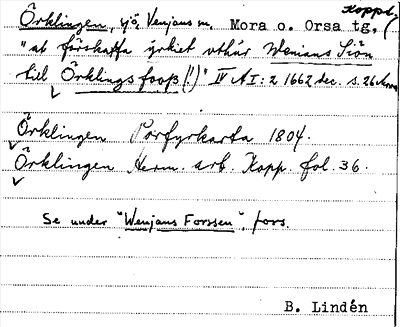 Koppb.
Örklingen, sjö, Venjans sn. Mora o. Orsa tg.
"at förskaffa yrket uthur Wenians Siön
till Örklings fooß (!)" IV A I: 2 1662 dec. s. 26
Örklingen Porfyrkarta 1804.
Örklingen Herm. arb. Kopp. fol. 36.
Se under "Wenjans Forssen", fors.
B. Lindén